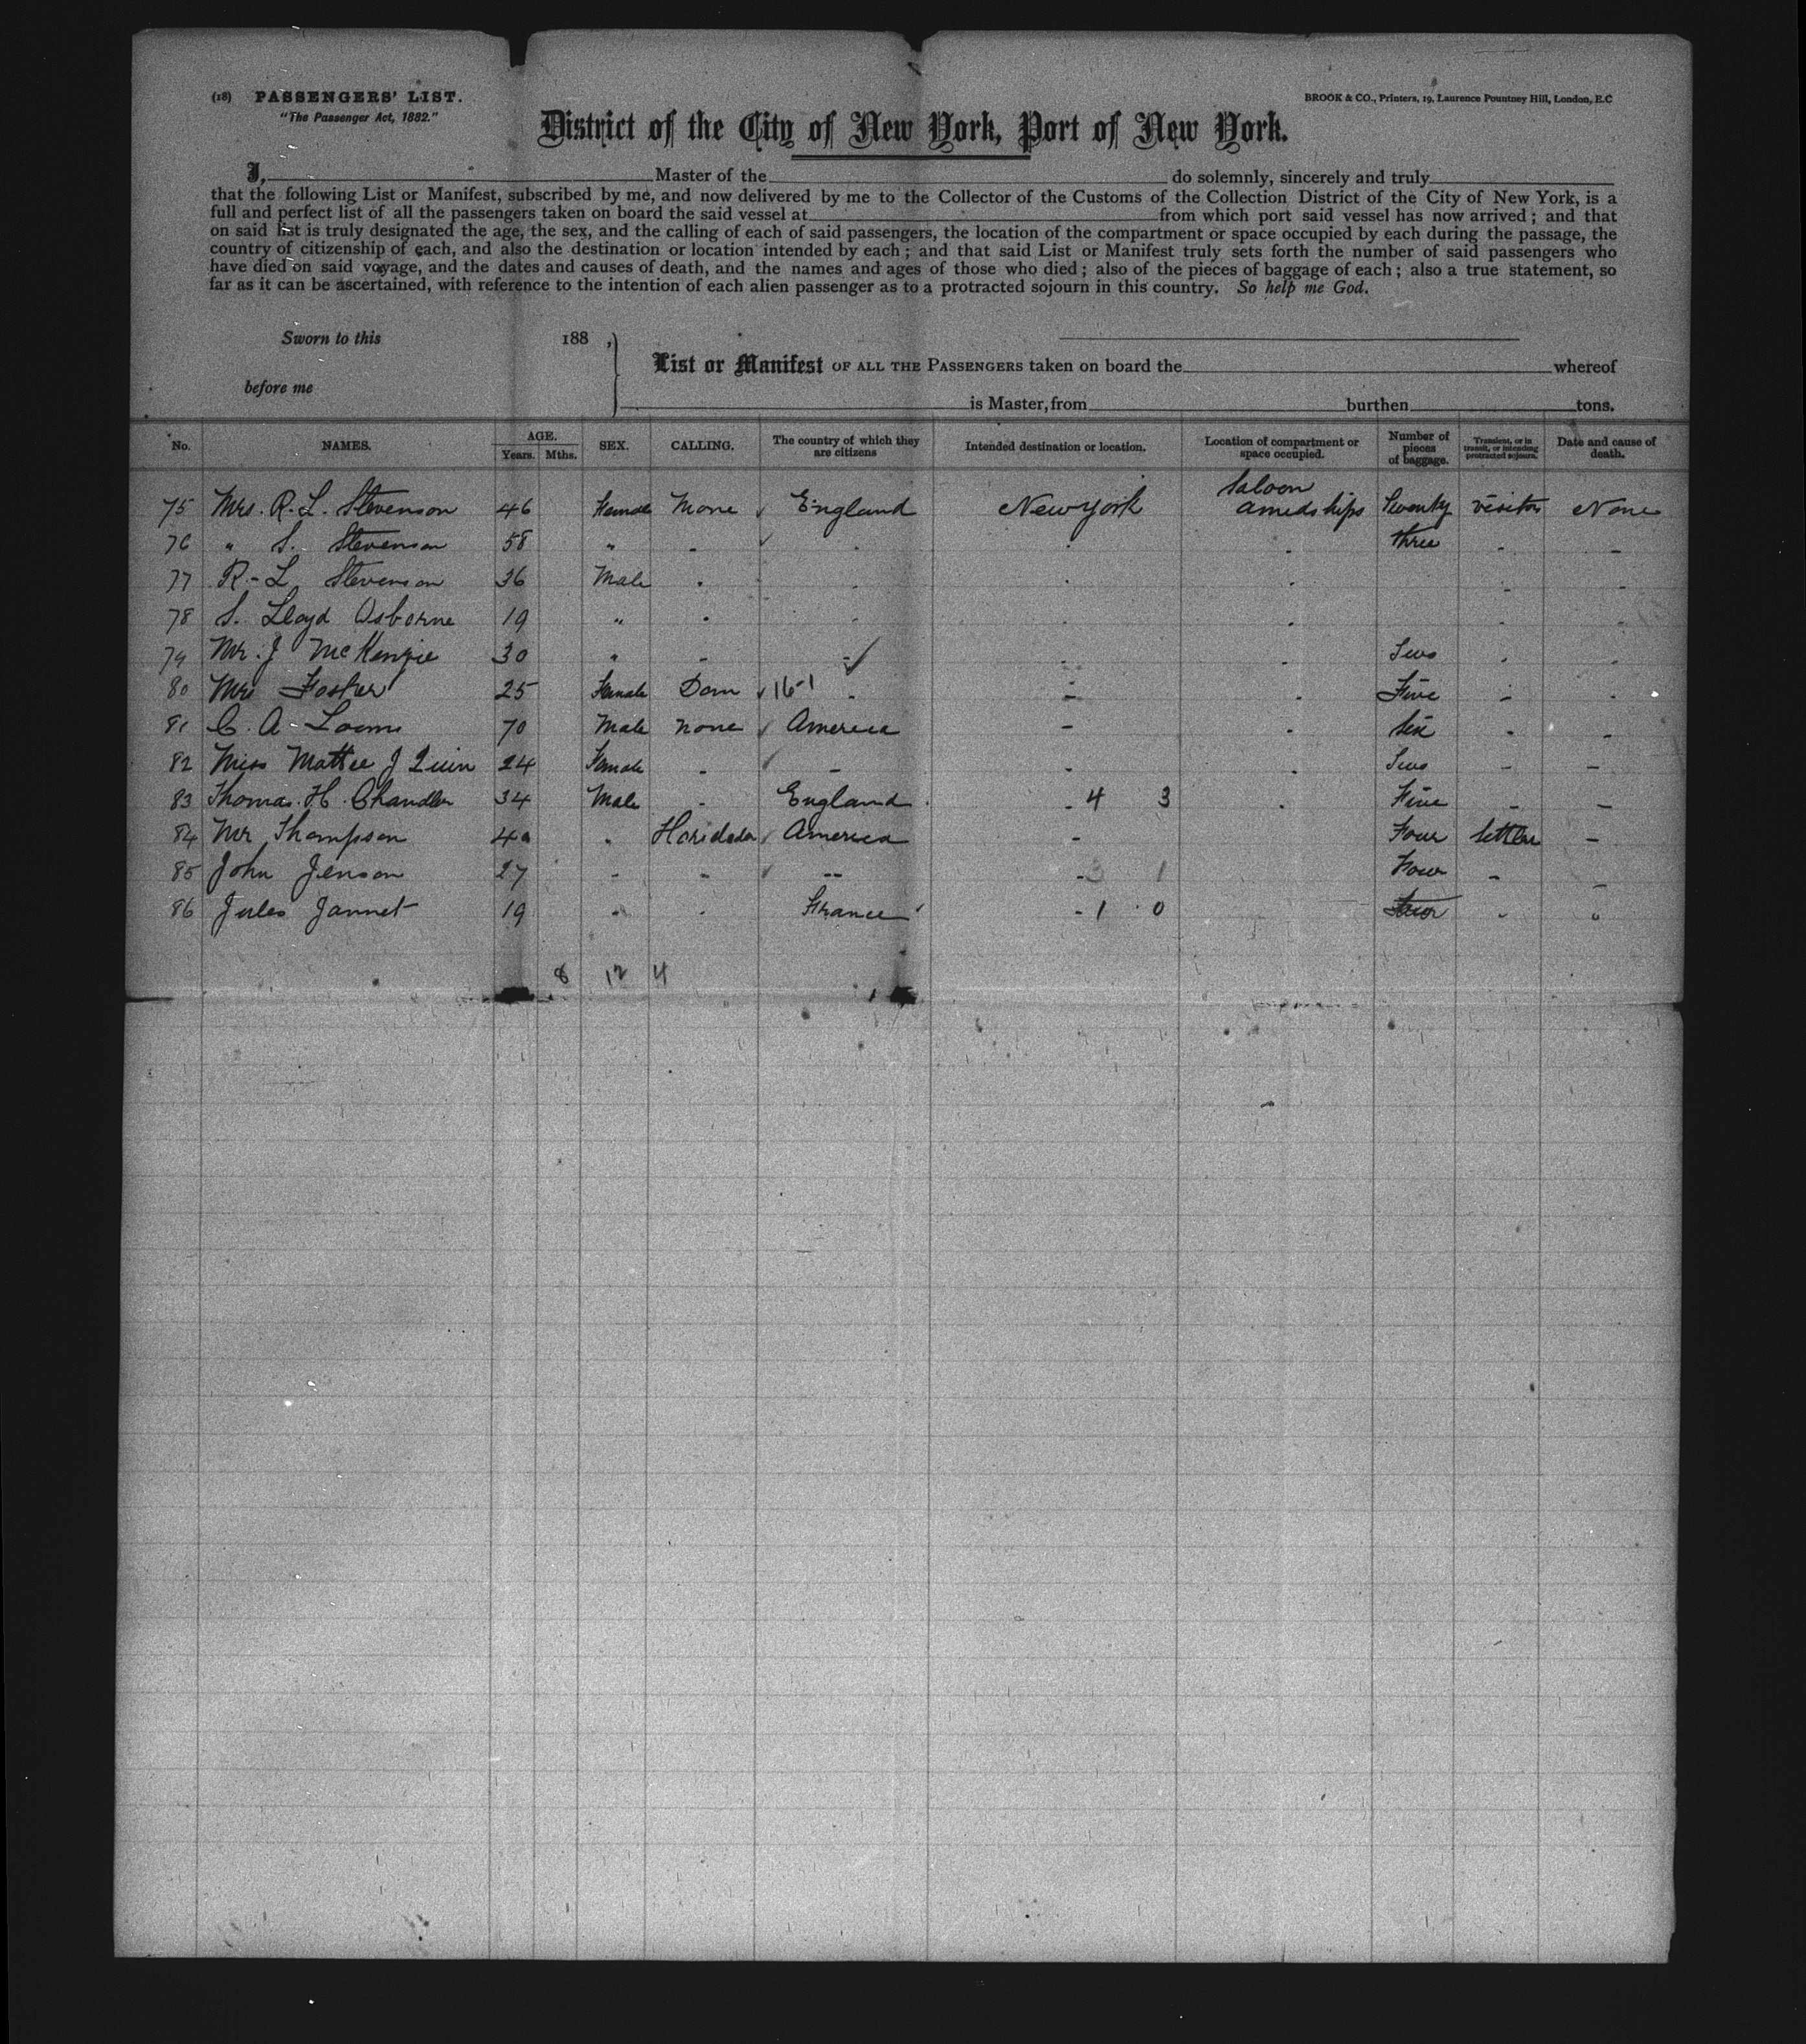 (18) PASSENGERS' LIST.
"The Passenger Act, 1882."
BROOK & CO., Printers, 19, Laurence Pountney Hill, London, E.C
District of the City of New York, Port of New York.
I, Master of the do solemnly, sincerely and truly
that the following List or Manifest, subscribed by me, and now delivered by me to the Collector of the Customs of the Collection District of the City of New York, is a
full and perfect list of all the passengers taken on board the said vessel at from which port said vessel has now arrived; and that
on said list is truly designated the age, the sex, and the calling of each of said passengers, the location of the compartment or space occupied by each during the passage, the
country of citizenship of each, and also the destination or location intended by each; and that said List or Manifest truly sets forth the number of said passengers who
have died on said voyage, and the dates and causes of death, and the names and ages of those who died; also of the pieces of baggage of each; also a true statement, so
far as it can be ascertained, with reference to the intention of each alien passenger as to a protracted sojourn in this country. So help me God.
Sworn to this 188 ,
before me
List or Manifest OF ALL THE PASSENGERS taken on board the whereof
is Master, from burthen tons.
No. NAMES. AGE. Years. Mths. SEX. CALLING. The country of which they are citizens Intended destination or location. Location of compartment or space occupied. Number of pieces of baggage. Transient, or in transit, or intending protracted sojourn. Date and cause of death.
75 Mrs. R. L. Stevenson 46 Female None England New York Saloon amidships Seventy visitor None
76 " S. Stevenson 58 " three
77 R. L. Stevenson 36 Male
78 S. Lloyd Osborne 19 "
79 Mr. J McKenzie 30 " Two
80 Mrs Foster 25 Female Dom 16-1 Five
81 C. A. Looms 70 Male None America Six
82 Miss Mattee J Quin 24 Female Two
83 Thomas. H. Chandler 34 Male England 4 3 Five
84 Mr Thompson 40 " America Four Settler
85 John Jenson 27 3 1 Four
86 Jules Jannet 19 France 1 0
8 12 4